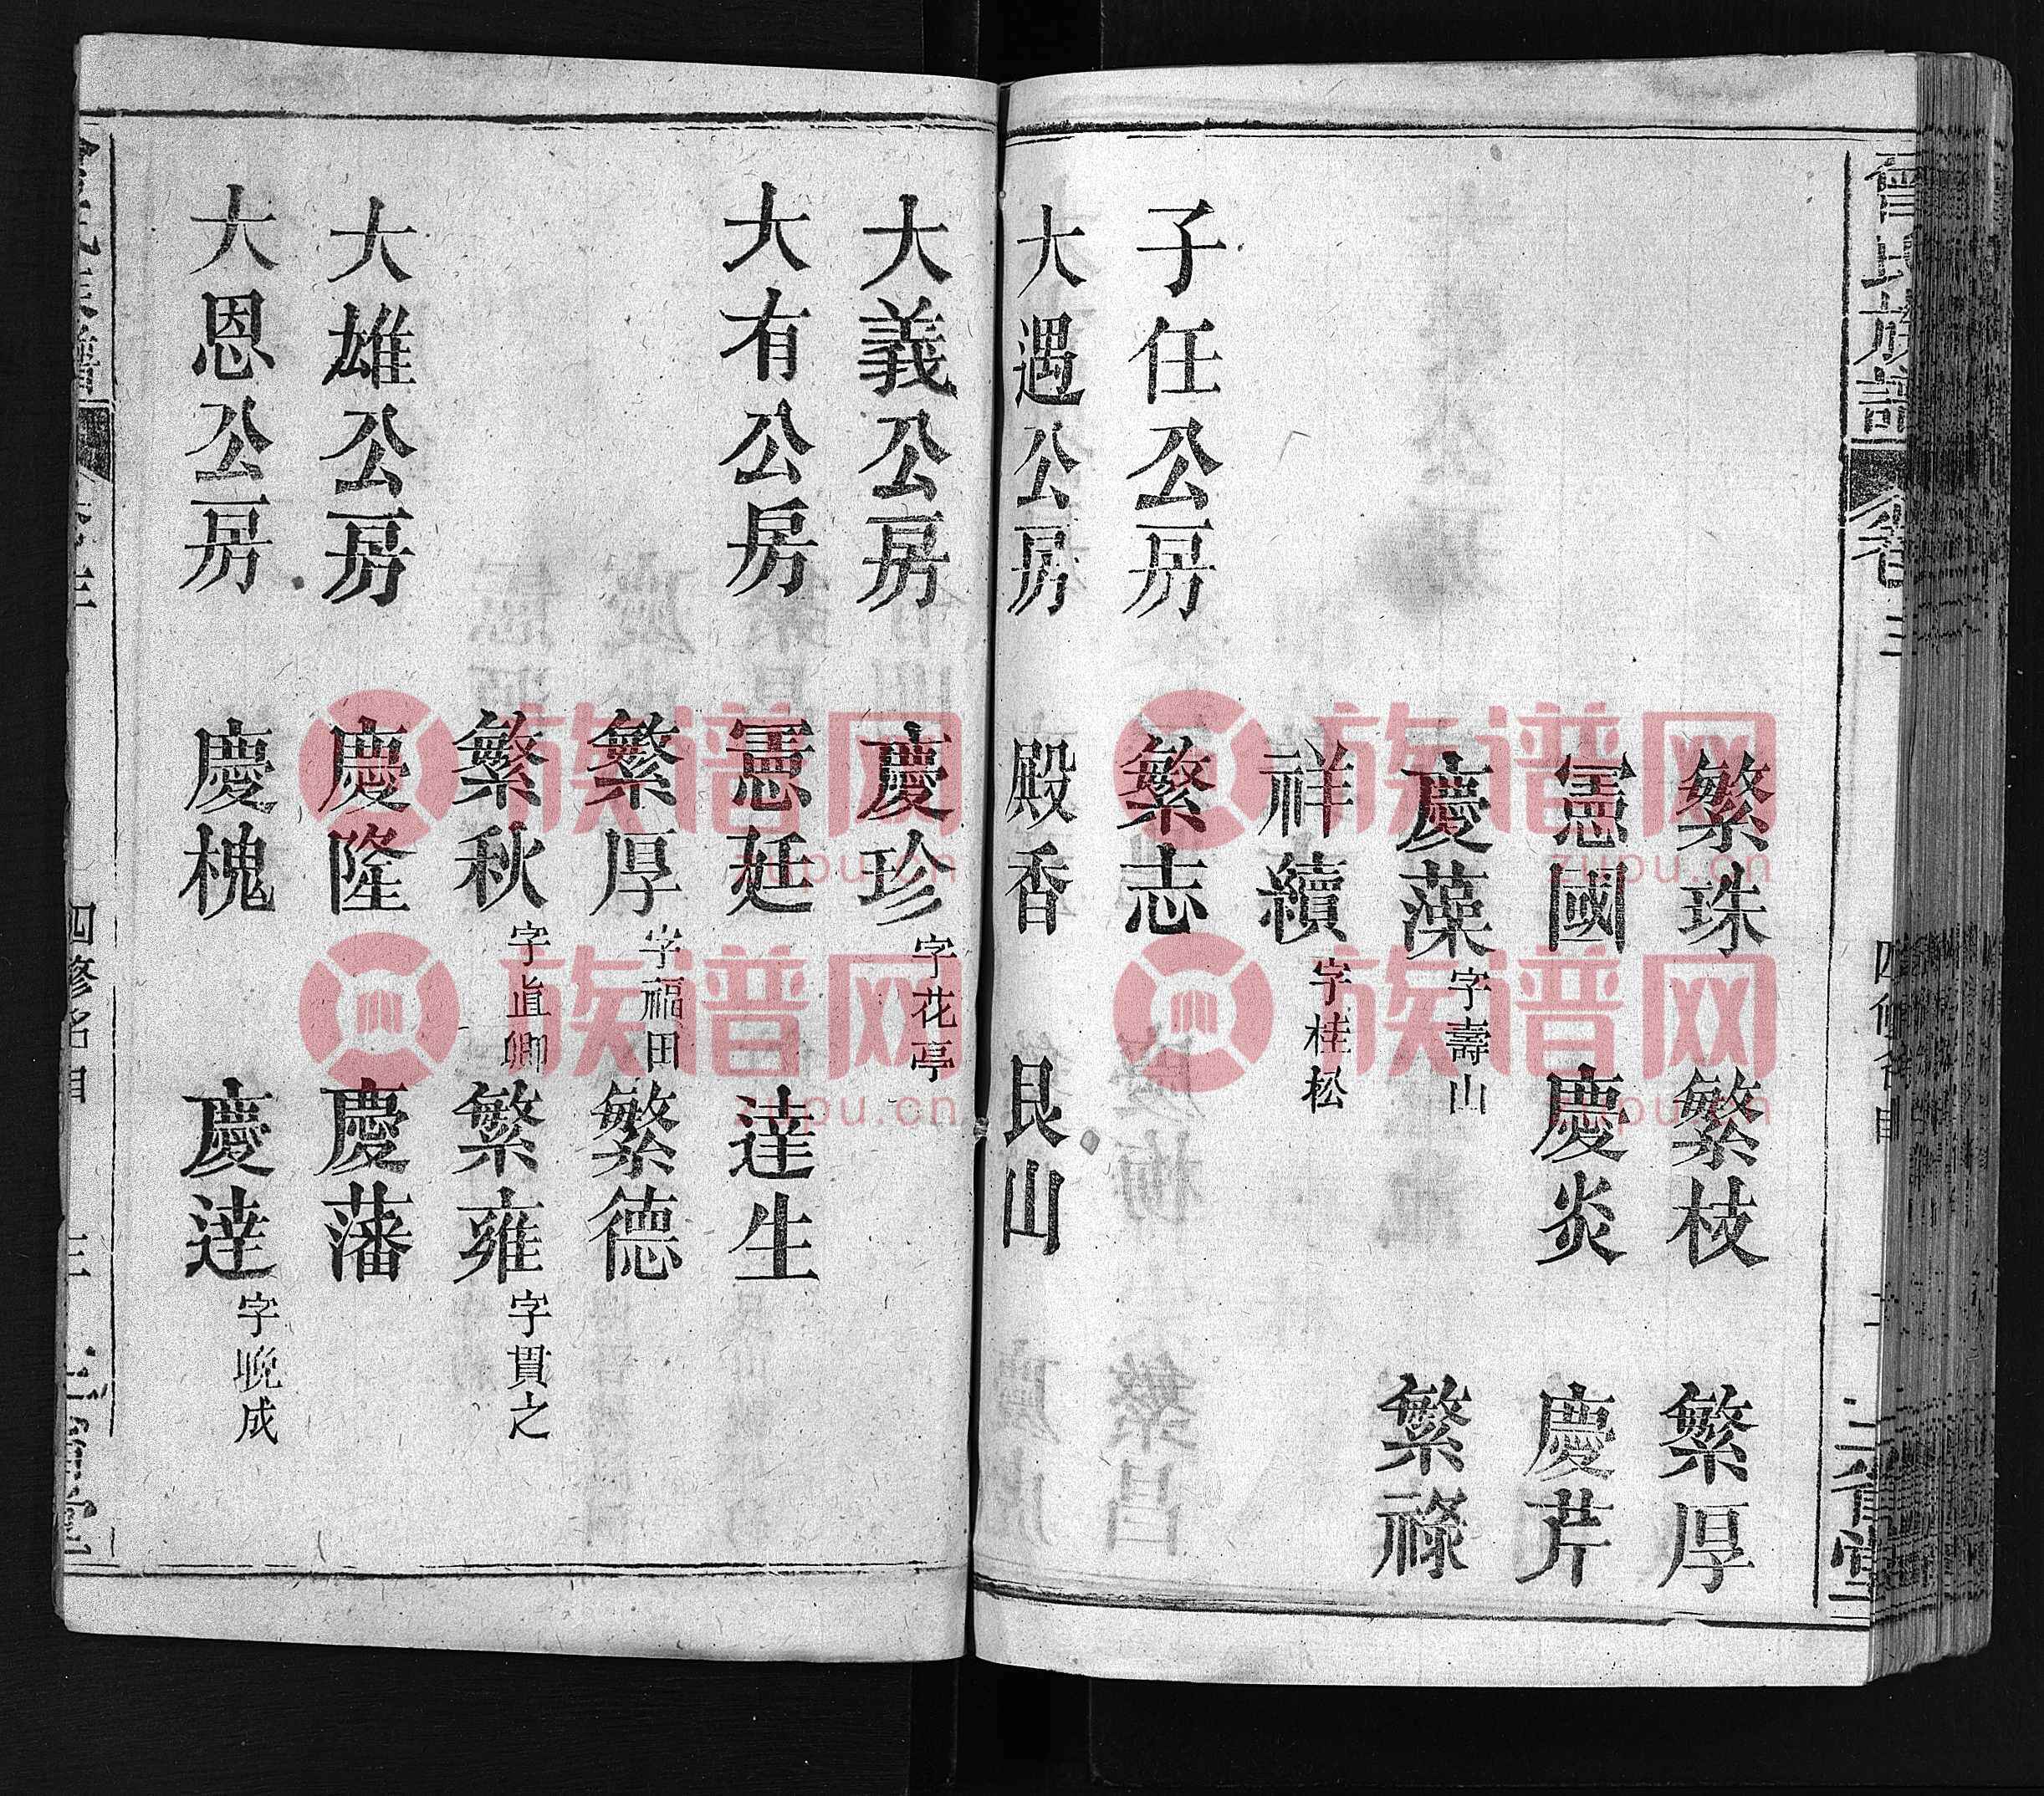 曾氏族譜 卷三 四修名目 二 三省堂
繁珠 繁枝 繁厚
憲國 慶炎 慶芹
慶藻字壽山 繁祿
祥續字桂松
子任公房 繁志
大遇公房 殿香 艮山
大義公房 慶珍字花亭
大有公房 憲廷 達生
繁厚字福田 繁德
繁秋字直卿 繁雍字貫之
大雄公房 慶隆 慶藩
大恩公房 慶槐 慶達字晚成
曾氏族譜 卷三 四修名目 三 三省堂
族谱网
zupu.cn
族谱网
zupu.cn
族谱网
zupu.cn
族谱网
zupu.cn